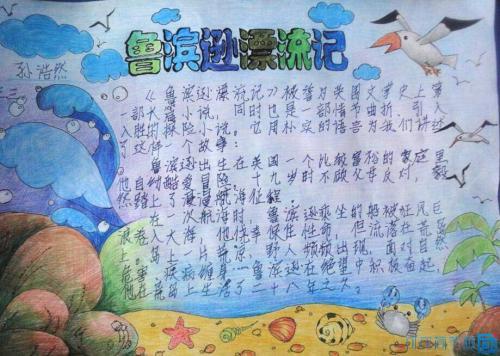 鲁滨逊漂流记
孙浩然
三
《鲁滨逊漂流记》被誉为英国文学史上第
一部大篇小说，同时也是一部情节曲折，引人
入胜的探险小说。它用朴实的语言为我们讲述
了这样一个故事：
鲁滨逊出生在英国一个比较富裕的家庭里
他自幼酷爱冒险，十九岁时不顾父母反对，毅
然踏上了漫漫航海征程。
在一次航海时，鲁滨逊乘坐的船被狂风巨
浪卷入大海，他侥幸保住性命，但流落在荒岛
岛上一片荒凉，野人频频出现，面对自然
危害，疾病缠身…鲁滨逊在绝望中积极奋起，
他在荒岛上生活了二十八年之久。